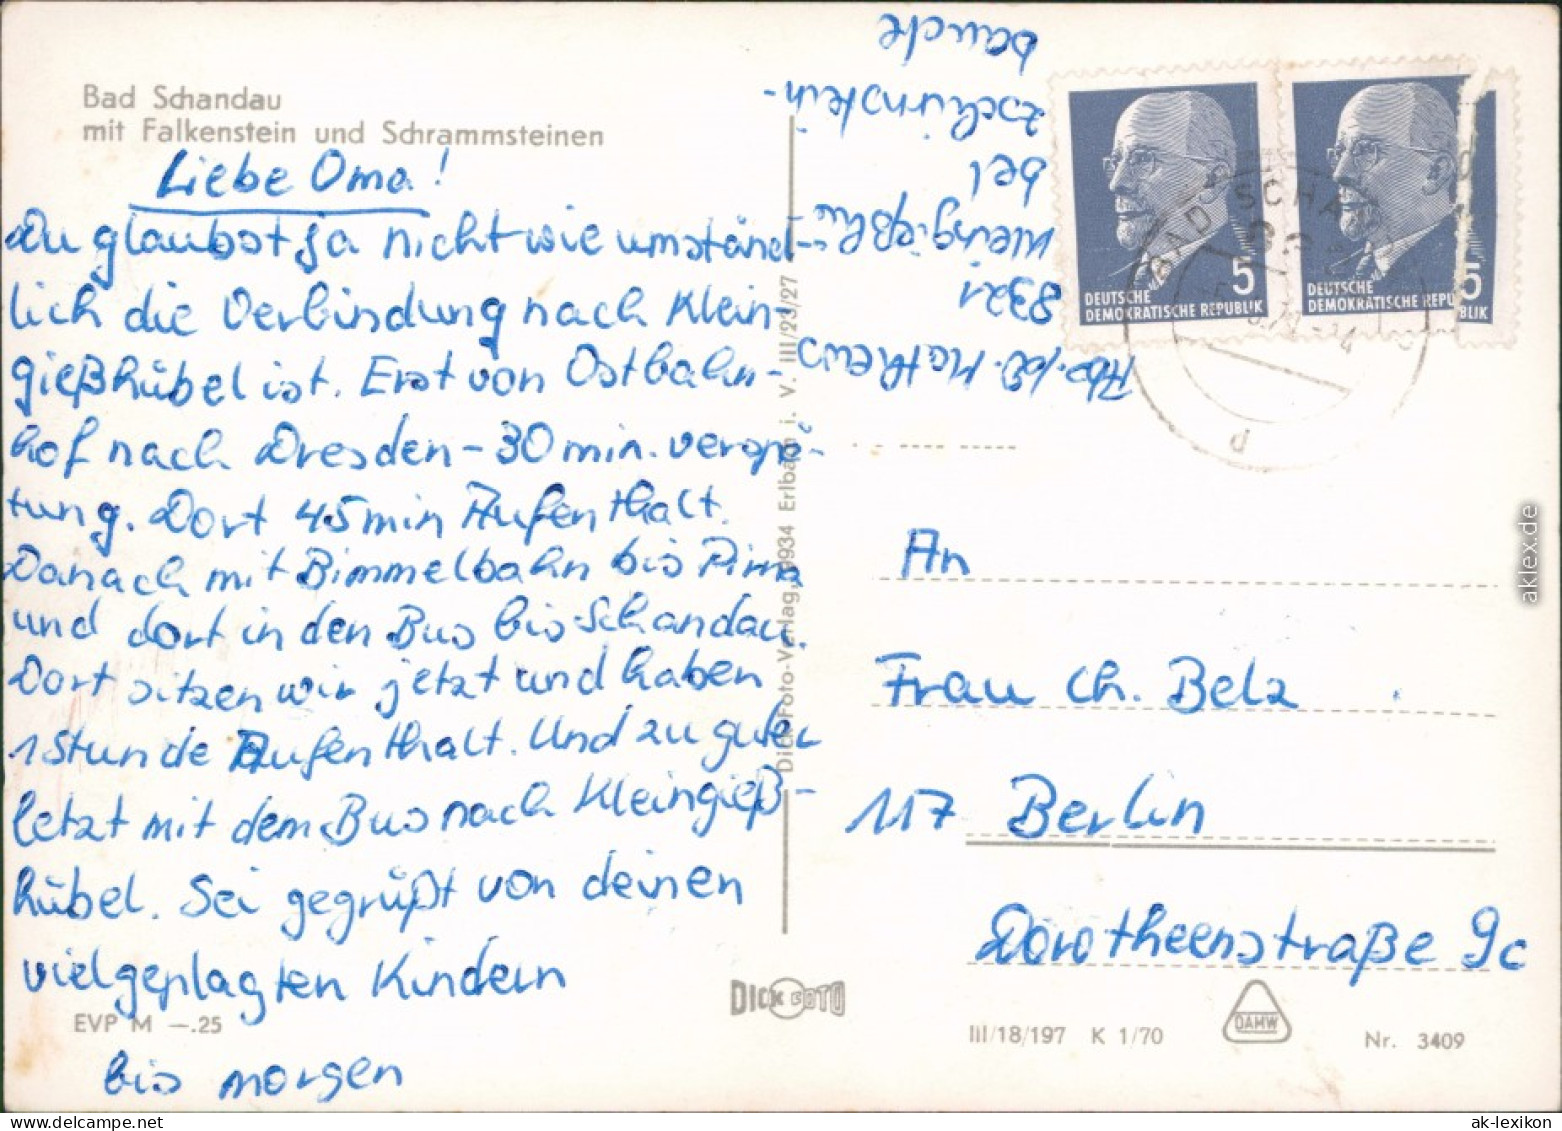 Bad Schandau
mit Falkenstein und Schrammsteinen
Liebe Oma!
Du glaubst ja nicht wie umständ-
lich die Verbindung nach Klein-
gießhübel ist. Erst von Ostbahn-
hof nach Dresden - 30 min. verspä-
tung. Dort 45 min Aufenthalt.
Danach mit Bimmelbahn bis Pirna
und dort in den Bus bis Schandau.
Dort sitzen wir jetzt und haben
1 Stunde Aufenthalt. Und zu guter
letzt mit dem Bus nach Kleingieß-
hübel. Sei gegrüßt von deinen
vielgeplagten Kindern
EVP M —.25
bis morgen
Dick-Foto-Verlag, 9934 Erlbach i. V. III/23/27
DICK FOTO
Abs. Mathews
8321
Kleingießhü-
bel
Zschirnstein-
baude
5
DEUTSCHE
DEMOKRATISCHE REPUBLIK
5
DEUTSCHE
DEMOKRATISCHE REPUBLIK
BAD SCHANDAU
d
An
Frau Ch. Belz
117 Berlin
Dorotheenstraße 9c
III/18/197 K 1/70
DAMW
Nr. 3409
aklex.de
ak-lexikon